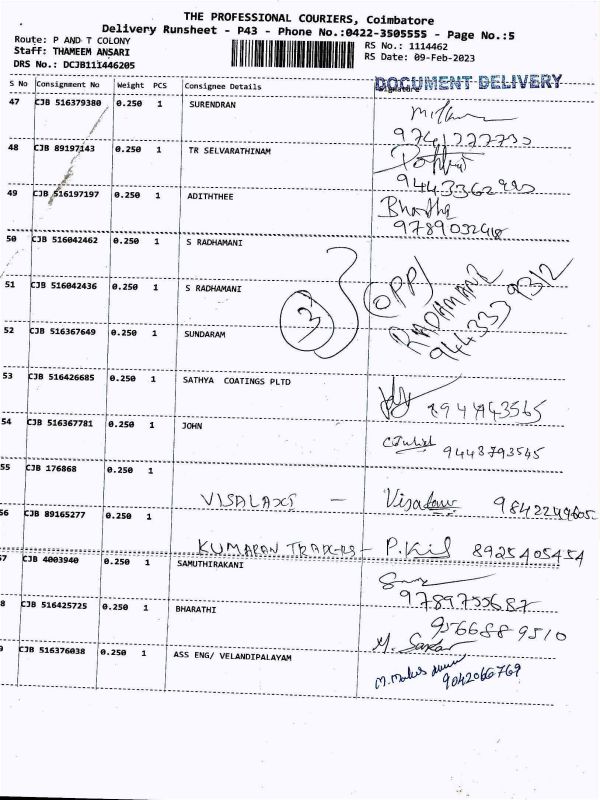 THE PROFESSIONAL COURIERS, Coimbatore
Delivery Runsheet - P43 - Phone No.:0422-3505555 - Page No.:5
Route: P AND T COLONY
Staff: THAMEEM ANSARI
DRS No.: DCJB111446205
RS No.: 1114462
RS Date: 09-Feb-2023
DOCUMENT DELIVERY
S No Consignment No Weight PCS Consignee Details Signature
47 CJB 516379380 0.250 1 SURENDRAN
48 CJB 89197143 0.250 1 TR SELVARATHINAM
9443362990
49 CJB 516197197 0.250 1 ADITHTHEE
Bharathy
9789032918
50 CJB 516042462 0.250 1 S RADHAMANI
51 CJB 516042436 0.250 1 S RADHAMANI
3 OPP/
RADHAMANI
944333 9312
52 CJB 516367649 0.250 1 SUNDARAM
53 CJB 516426685 0.250 1 SATHYA COATINGS PLTD
54 CJB 516367781 0.250 1 JOHN
9443793545
55 CJB 176868 0.250 1
VISALAXI - 9842249605
56 CJB 89165277 0.250 1
KUMARAN TRADERS - 8925405454
57 CJB 4003940 0.250 1 SAMUTHIRAKANI
9789755687
8 CJB 516425725 0.250 1 BHARATHI
956688 9510
9 CJB 516376038 0.250 1 ASS ENG/ VELANDIPALAYAM
9042066769